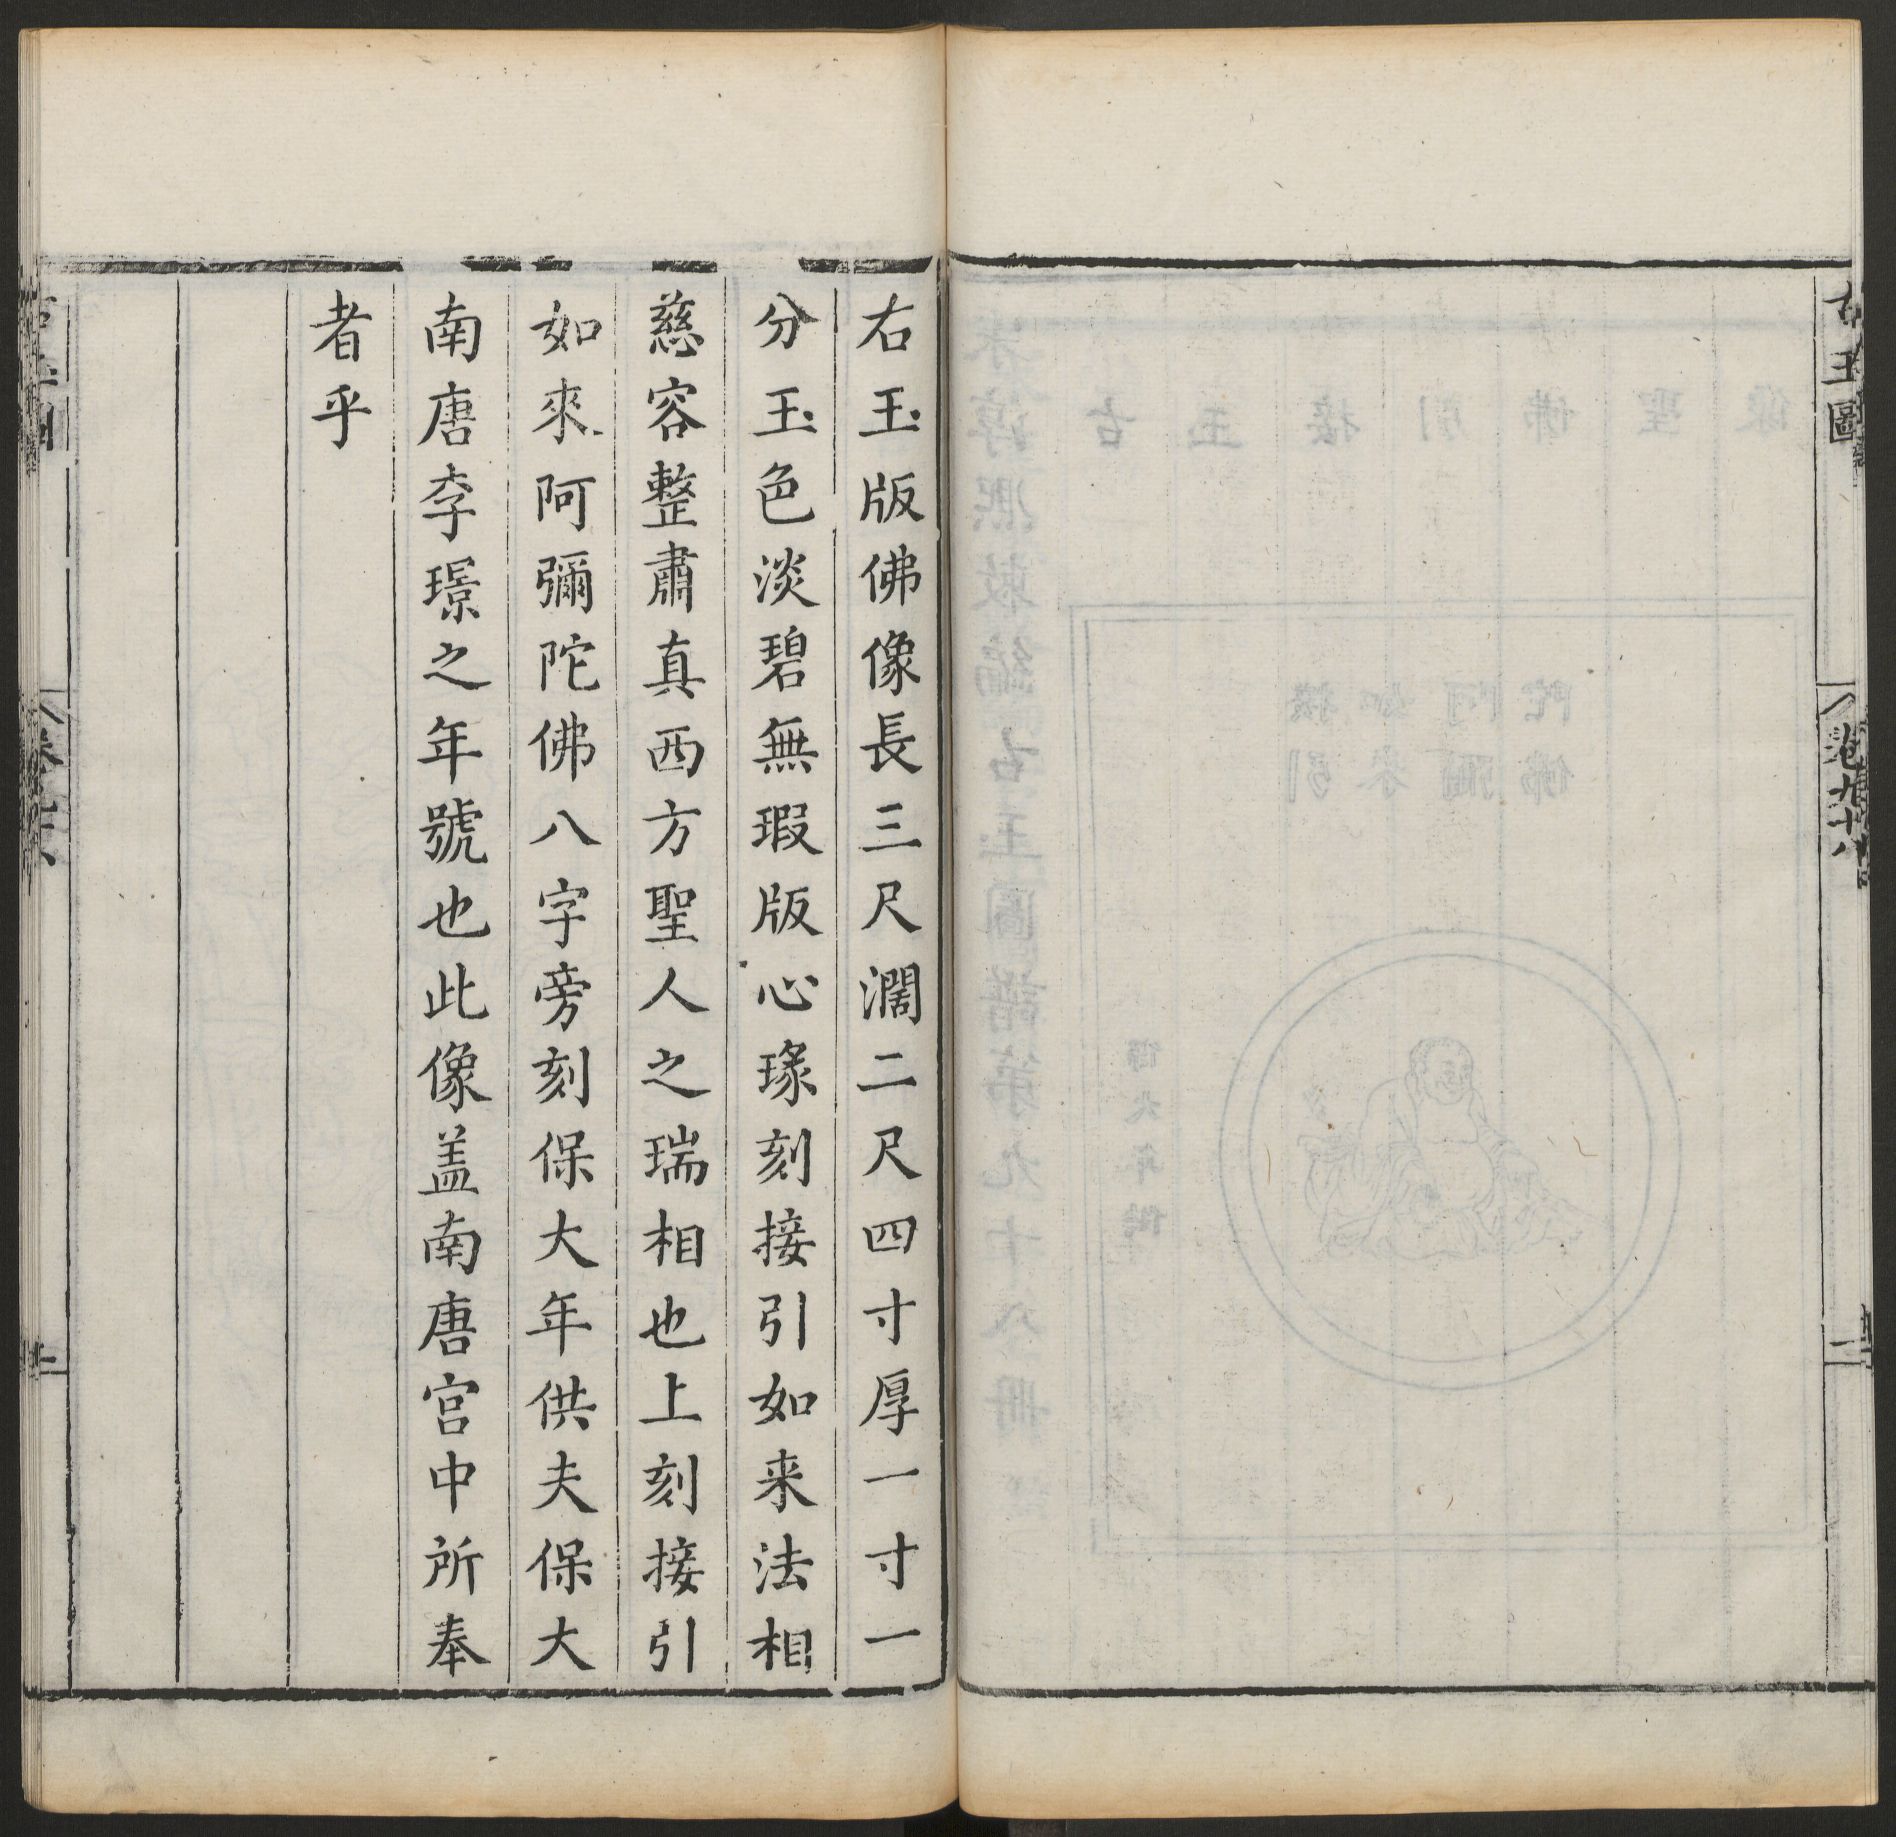 古玉圖
卷九十八
一
右玉版佛像長三尺濶二尺四寸厚一寸一
分玉色淡碧無瑕版心瑑刻接引如来法相
慈容整肅真西方聖人之瑞相也上刻接引
如來阿彌陀佛八字旁刻保大年供夫保大
南唐李璟之年號也此像盖南唐宫中所奉
者乎